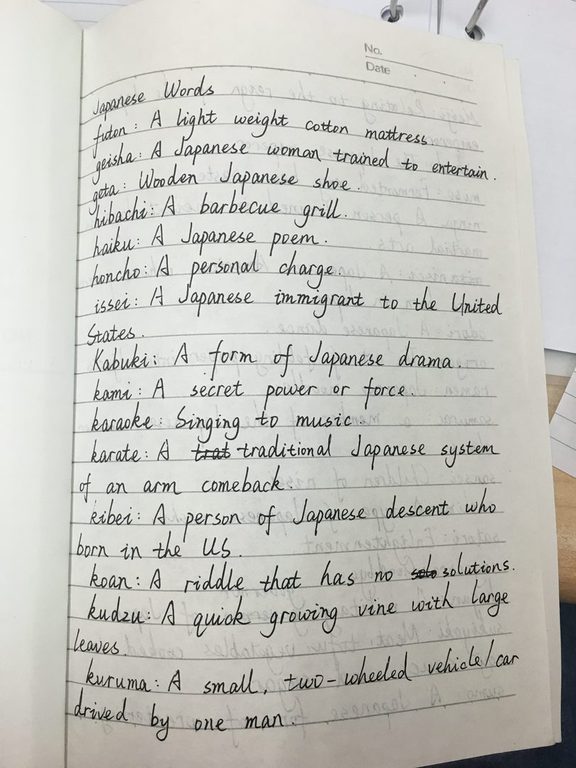 No.
Date
Japanese Words
futon: A light weight cotton mattress.
geisha: A Japanese woman trained to entertain.
geta: Wooden Japanese shoe.
hibachi: A barbecue grill.
haiku: A Japanese poem.
honcho: A personal charge.
issei: A Japanese immigrant to the United
States.
Kabuki: A form of Japanese drama.
kami: A secret power or force.
karaoke: Singing to music.
karate: A trat traditional Japanese system
of an arm comeback.
kibei: A person of Japanese descent who
born in the US.
koan: A riddle that has no solutions.
kudzu: A quick growing vine with large
leaves.
kuruma: A small, two-wheeled vehicle/car
drived by one man.